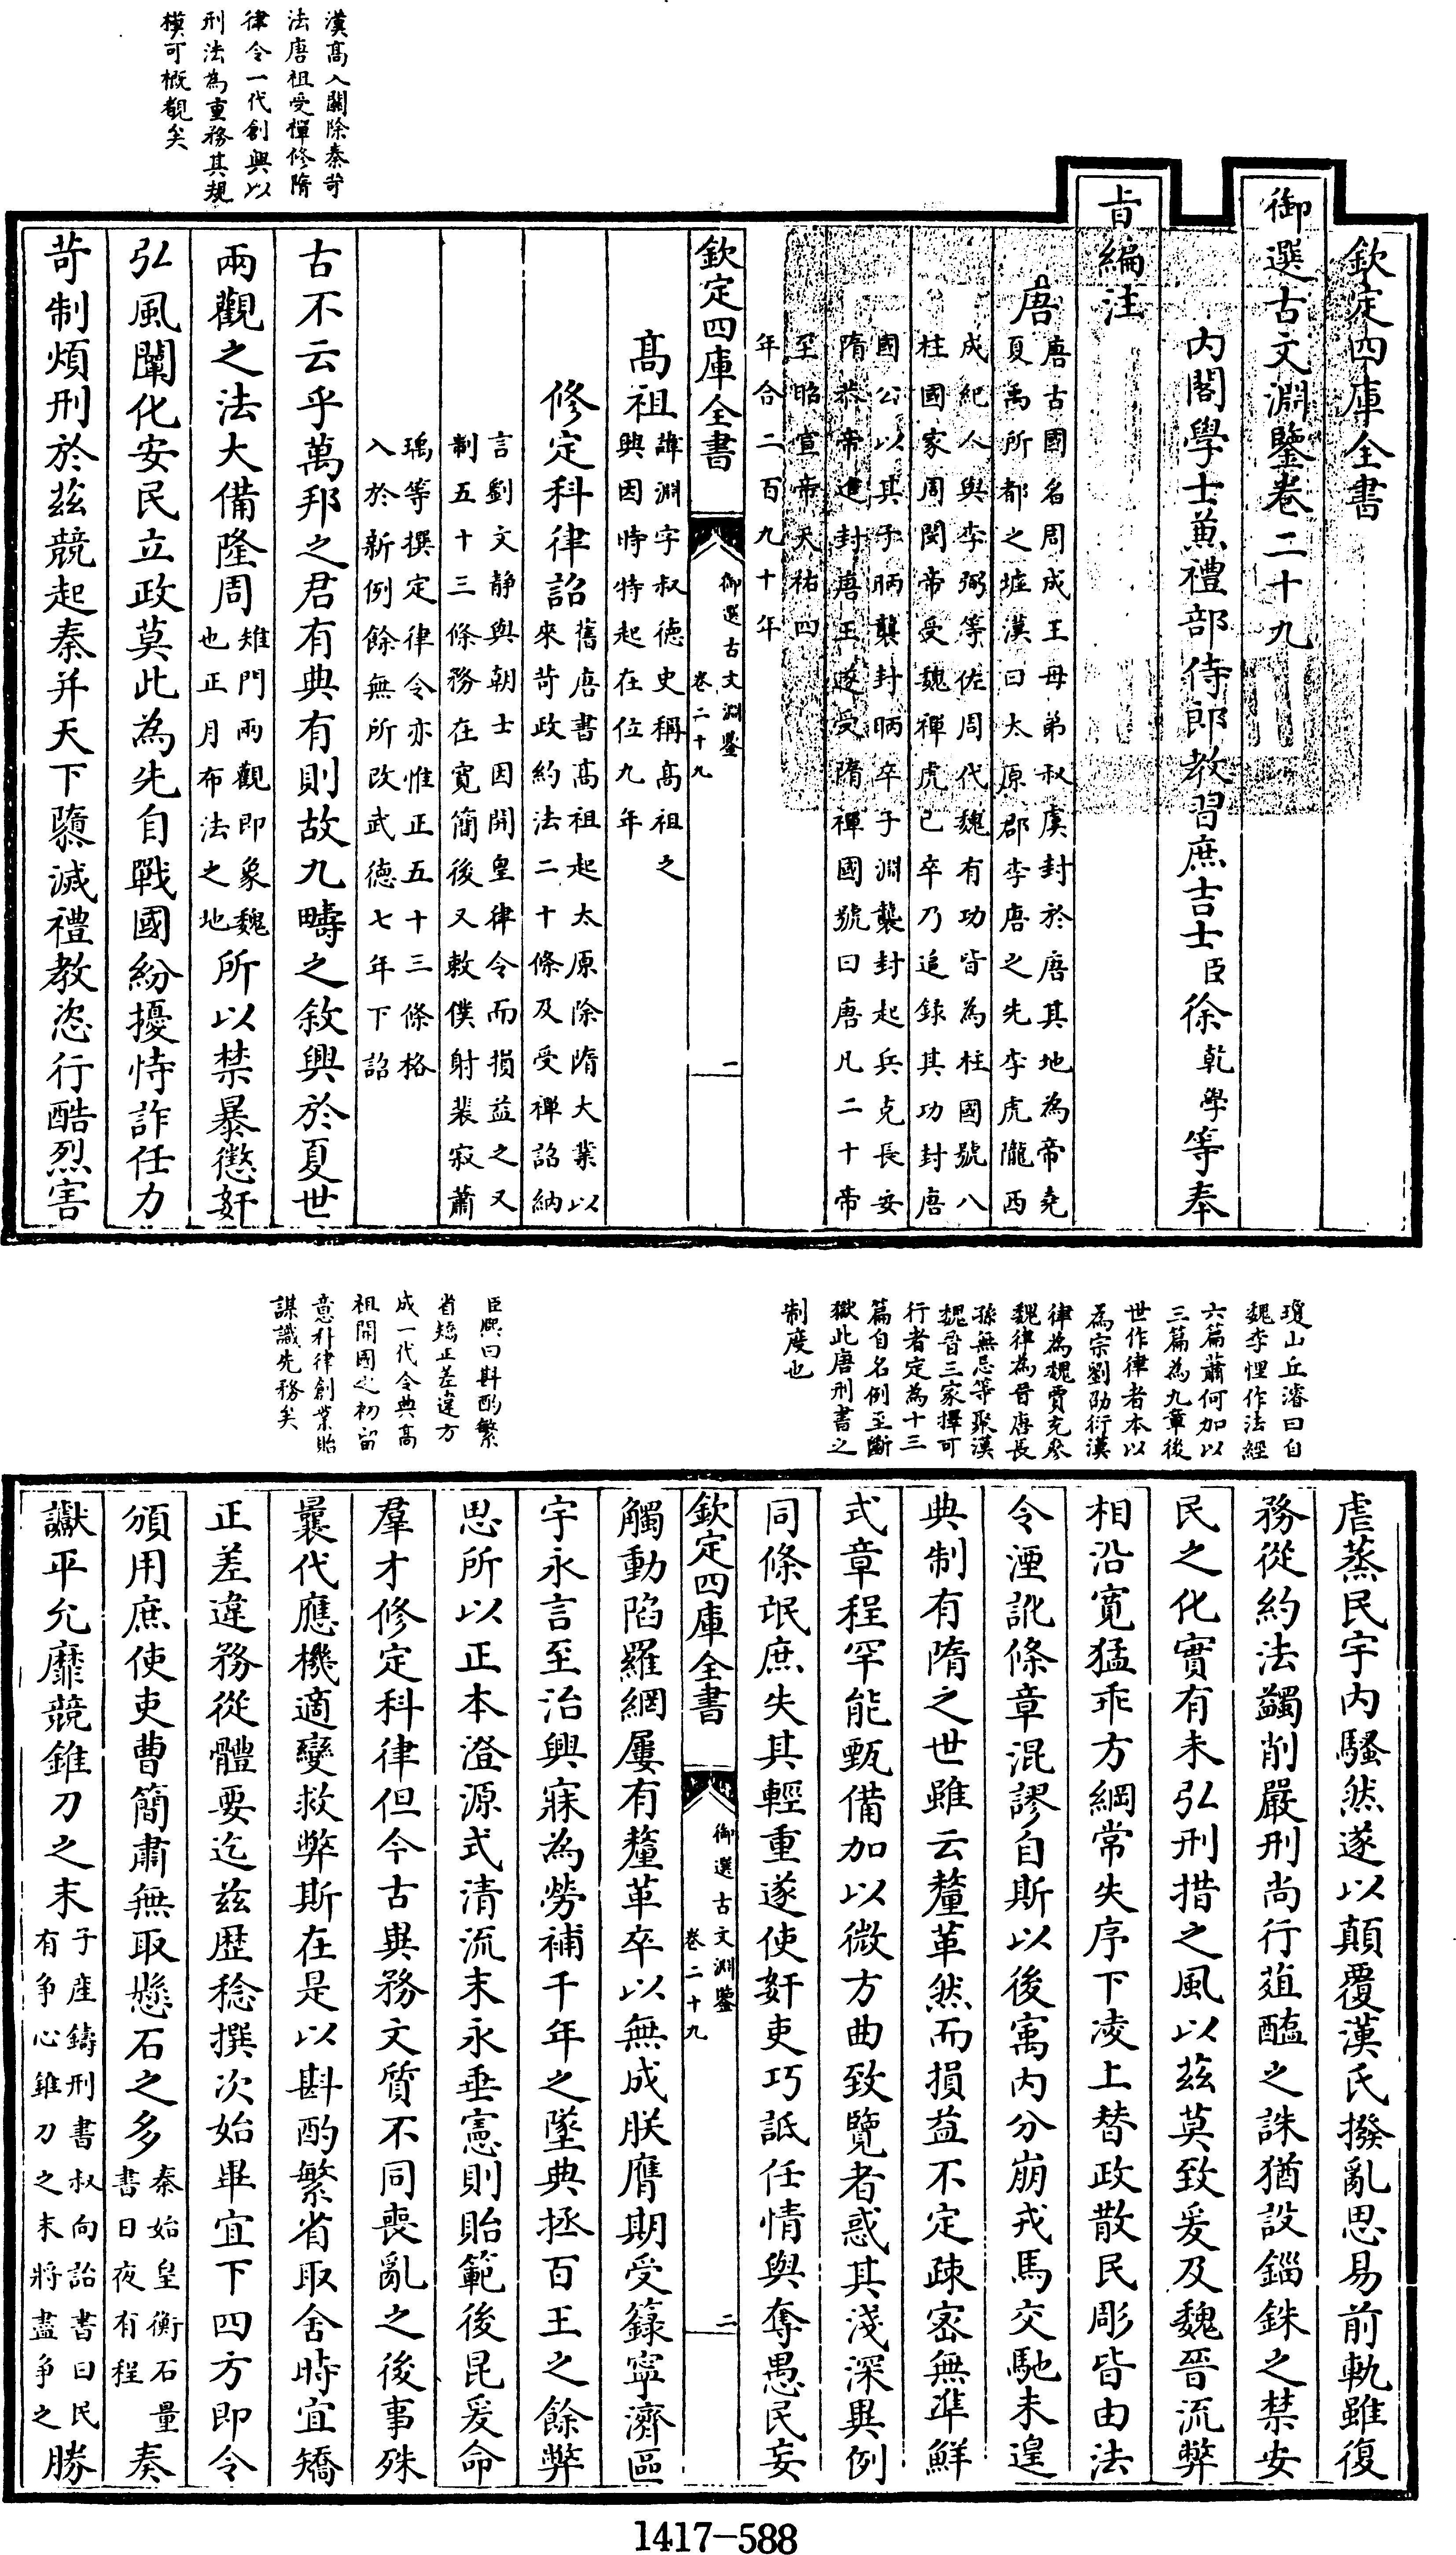 漢髙入關除秦苛
法唐祖受禪修隋
律令一代創興以
刑法為重務其規
模可概觀矣
欽定四庫全書
御選古文淵鑒卷二十九
内閣學士兼禮部侍郎教習庶吉士臣徐乾學等奉
㫖編注
唐
唐古國名周成王母弟叔虞封於唐其地為帝堯
夏禹所都之墟漢曰太原郡李唐之先李虎隴西
成紀人與李弼等佐周代魏有功皆為柱國號八
柱國家周閔帝受魏禪虎已卒乃追録其功封唐
國公以其子昞襲封昞卒子淵襲封起兵克長安
隋恭帝進封唐王遂受隋禪國號曰唐凡二十帝
至昭宣帝天祐四
年合二百九十年
欽定四庫全書
御選古文淵鑒
卷二十九
一
髙祖
諱淵字叔徳史稱髙祖之
興因時特起在位九年
修定科律詔
舊唐書髙祖起太原除隋大業以
來苛政約法二十條及受禪詔納
言劉文静與朝士因開皇律令而損益之又
制五十三條務在寛簡後又敕僕射裴寂蕭
瑀等撰定律令亦惟正五十三條格
入於新例餘無所改武徳七年下詔
古不云乎萬邦之君有典有則故九疇之敘興於夏世
兩觀之法大備隆周
雉門兩觀即象魏
也正月布法之地
所以禁暴懲奸
弘風闡化安民立政莫此為先自戰國紛擾恃詐任力
苛制煩刑於茲競起秦并天下隳滅禮教恣行酷烈害
瓊山丘濬曰自
魏李悝作法經
六篇蕭何加以
三篇為九章後
世作律者本以
為宗劉劭衍漢
律為魏賈充參
魏律為晉唐長
孫無忌等聚漢
魏晉三家擇可
行者定為十三
篇自名例至斷
獄此唐刑書之
制度也
臣熙曰斟酌繁
省矯正差違方
成一代令典髙
祖開國之初留
意科律創業貽
謀識先務矣
虐蒸民宇内騷然遂以顛覆漢氏撥亂思易前軌雖復
務從約法蠲削嚴刑尚行葅醢之誅猶設錙銖之禁安
民之化實有未弘刑措之風以茲莫致爰及魏晉流弊
相沿寛猛乖方綱常失序下凌上替政散民彫皆由法
令湮訛條章混謬自斯以後㝢内分崩戎馬交馳未遑
典制有隋之世雖云釐革然而損益不定疎宻無準鮮
式章程罕能甄備加以微方曲致覽者惑其淺深異例
同條氓庶失其輕重遂使奸吏巧詆任情與奪愚民妄
欽定四庫全書
御選古文淵鑒
卷二十九
二
觸動陷羅網屢有釐革卒以無成朕膺期受籙寧濟區
宇永言至治興寐為勞補千年之墜典拯百王之餘弊
思所以正本澄源式清流末永垂憲則貽範後昆爰命
羣才修定科律但今古異務文質不同喪亂之後事殊
曩代應機適變救弊斯在是以斟酌繁省取舍時宜矯
正差違務從體要迄茲歴稔撰次始畢宜下四方即令
頒用庶使吏曹簡肅無取懸石之多
秦始皇衡石量
書日夜有程
奏
讞平允靡競錐刀之末
子産鑄刑書叔向詒書曰民
有争心錐刀之末將盡争之
勝
1417—588